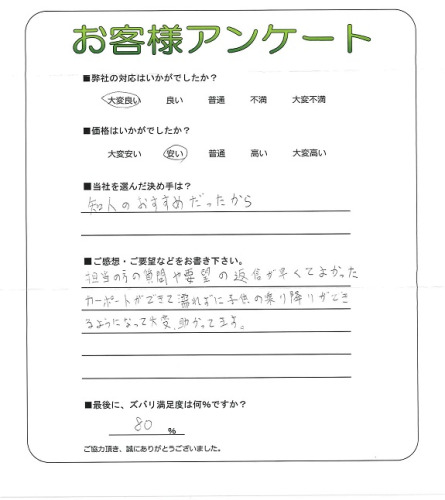 お客様アンケート
■弊社の対応はいかがでしたか?
大変良い 良い 普通 不満 大変不満
■価格はいかがでしたか?
大変安い 安い 普通 高い 大変高い
■当社を選んだ決め手は?
知人のおすすめだったから
■ご感想・ご要望などをお書き下さい。
担当の方の質問や要望の返信が早くてよかった
カーポートができて濡れずに子供の乗り降りができ
るようになって大変、助かってます。
■最後に、ズバリ満足度は何%ですか?
80 %
ご協力頂き、誠にありがとうございました。